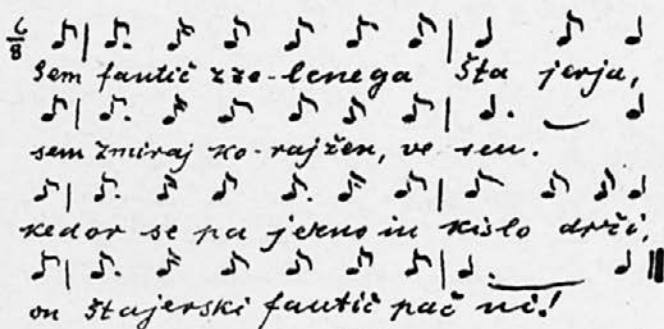 6/8
Sem fantič z ze-lenega Šta jerja,
sem zmiraj ko-rajžen, ve sen.
kedor se pa jezno in kislo drži,
on štajerski fantič pač ni!